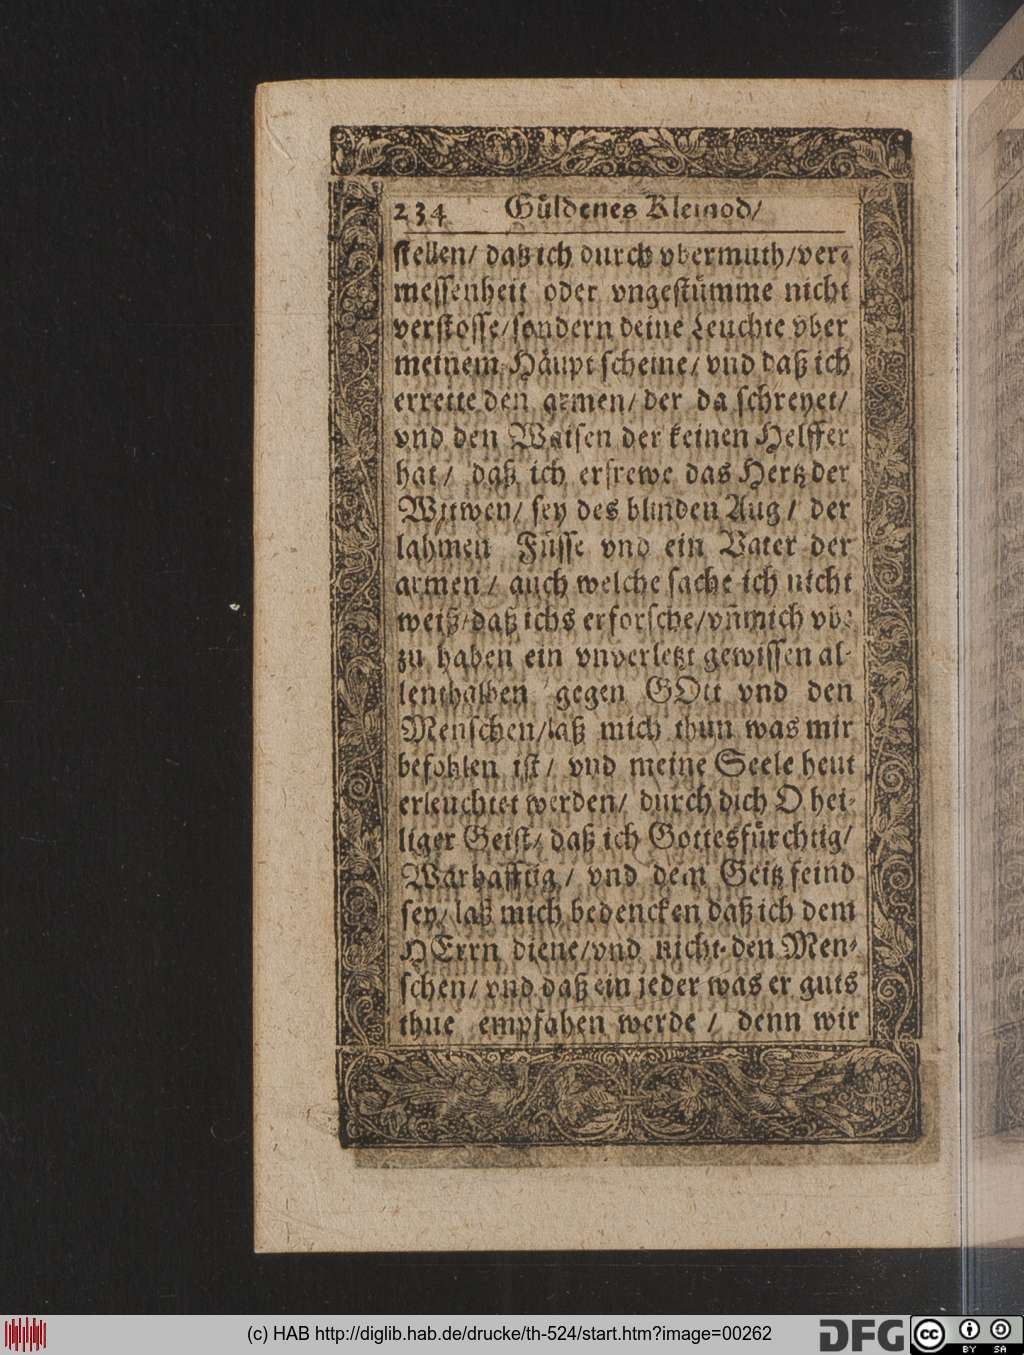 234 Güldenes Kleinod/
stellen/ daß ich durch vbermuth/ver-
messenheit oder vngestümme nicht
verstosse/sondern deine Leuchte vber
meinem Häupt scheine/ vnd daß ich
errette den armen/ der da schreyet/
vnd den Waisen der keinen Helffer
hat/ daß ich erfrewe das Hertz der
Witwen/ sey des blinden Aug/ der
lahmen Füsse vnd ein Vater der
armen/ auch welche sache ich nicht
weiß/daß ichs erforsche/vñ mich vbe
zu haben ein vnverletzt gewissen al-
lenthalben gegen GOtt vnd den
Menschen/laß mich thun was mir
befohlen ist/ vnd meine Seele heut
erleuchtet werden/ durch dich O hei-
liger Geist/ daß ich Gottesfürchtig/
Warhafftig/ vnd dem Geitz feind
sey/ laß mich bedencken daß ich dem
HErrn diene/vnd nicht den Men-
schen/ vnd daß ein jeder was er guts
thue empfahen werde/ denn wir
(c) HAB http://diglib.hab.de/drucke/th-524/start.htm?image=00262
DFG
cc BY SA